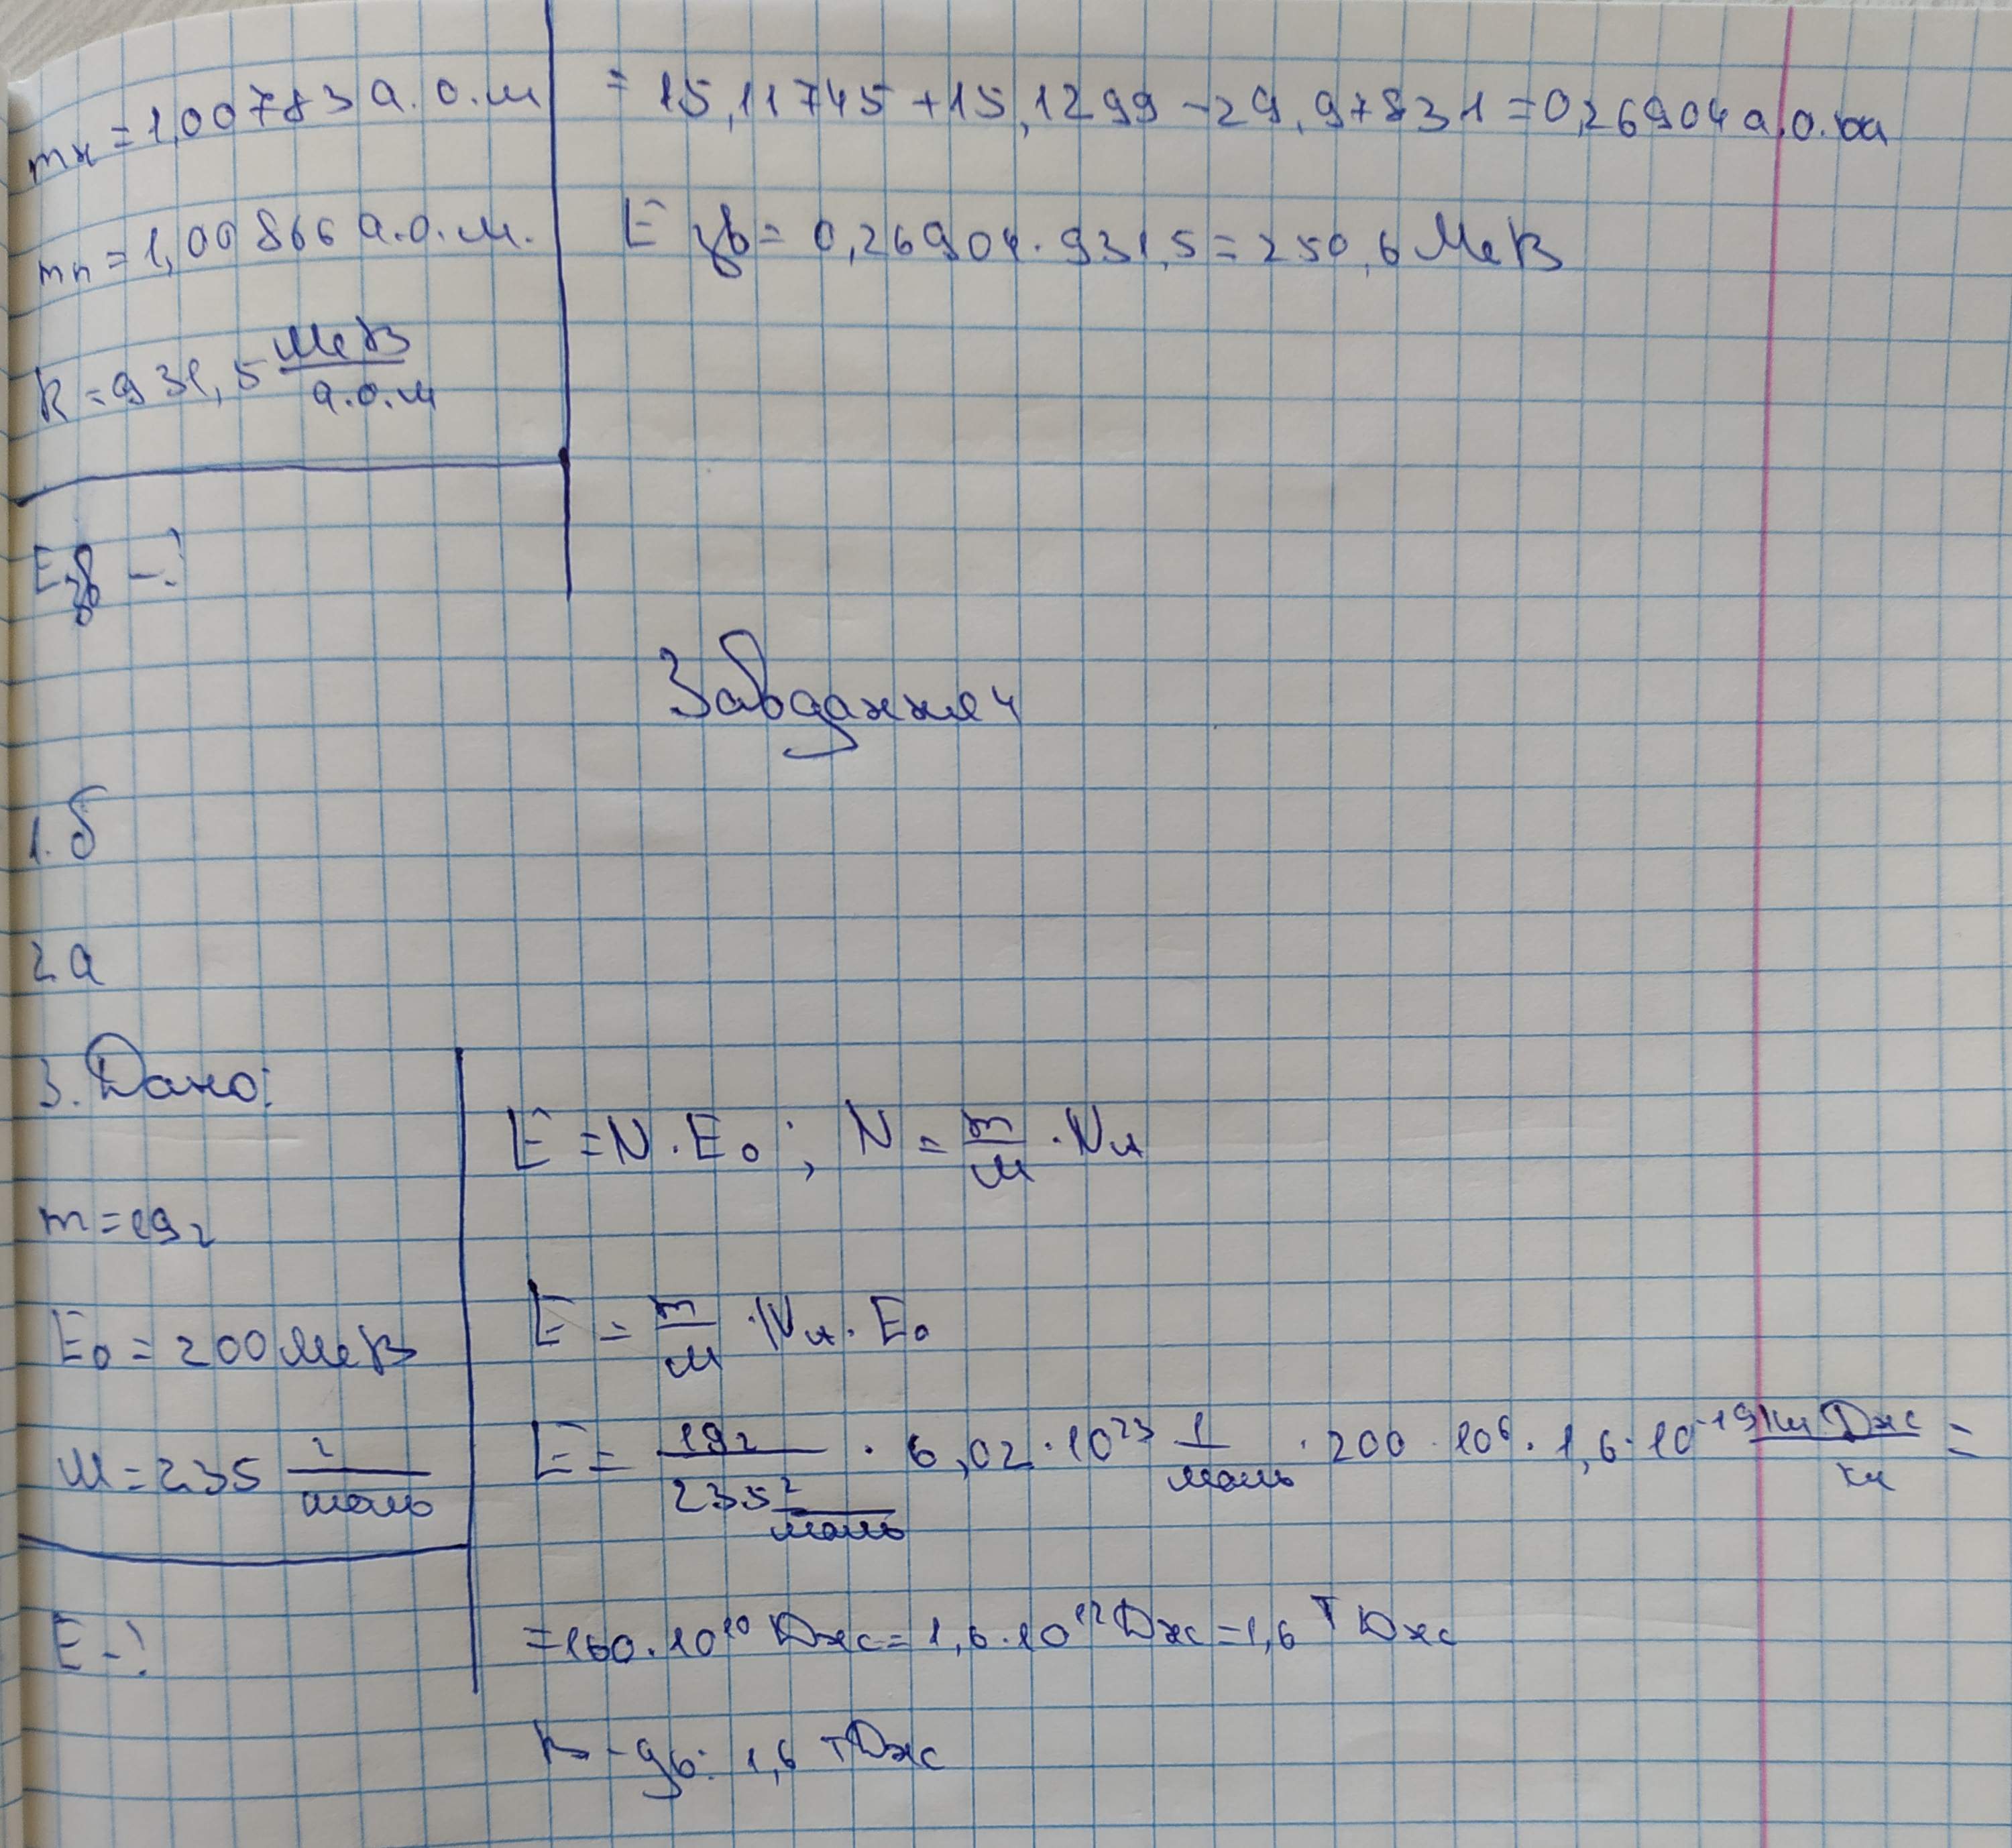 mн = 1,00783 а.о.м
mn = 1,00866 а.о.м.
k = 931,5 МеВ/а.о.м
Eзв - ?
= 15,11745 + 15,1299 - 29,97831 = 0,26904 а.о.м
Eзв = 0,26904 · 931,5 = 250,6 МеВ
Завдання 4
1. б
2 а
3. Дано:
m = 19 г
E₀ = 200 МеВ
М = 235 г/моль
E - ?
E = N · E₀ ; N = m/М · Nₐ
E = m/М · Nₐ · E₀
E = 19 г / 235 г/моль · 6,02 · 10²³ 1/моль · 200 · 10⁶ · 1,6 · 10⁻¹⁹ Кл Дж/кл =
= 160 · 10¹⁰ Дж = 1,6 · 10¹² Дж = 1,6 Т Дж
В-дь: 1,6 тДж